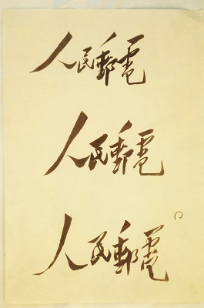 人民郵電
人民郵電
人民郵電